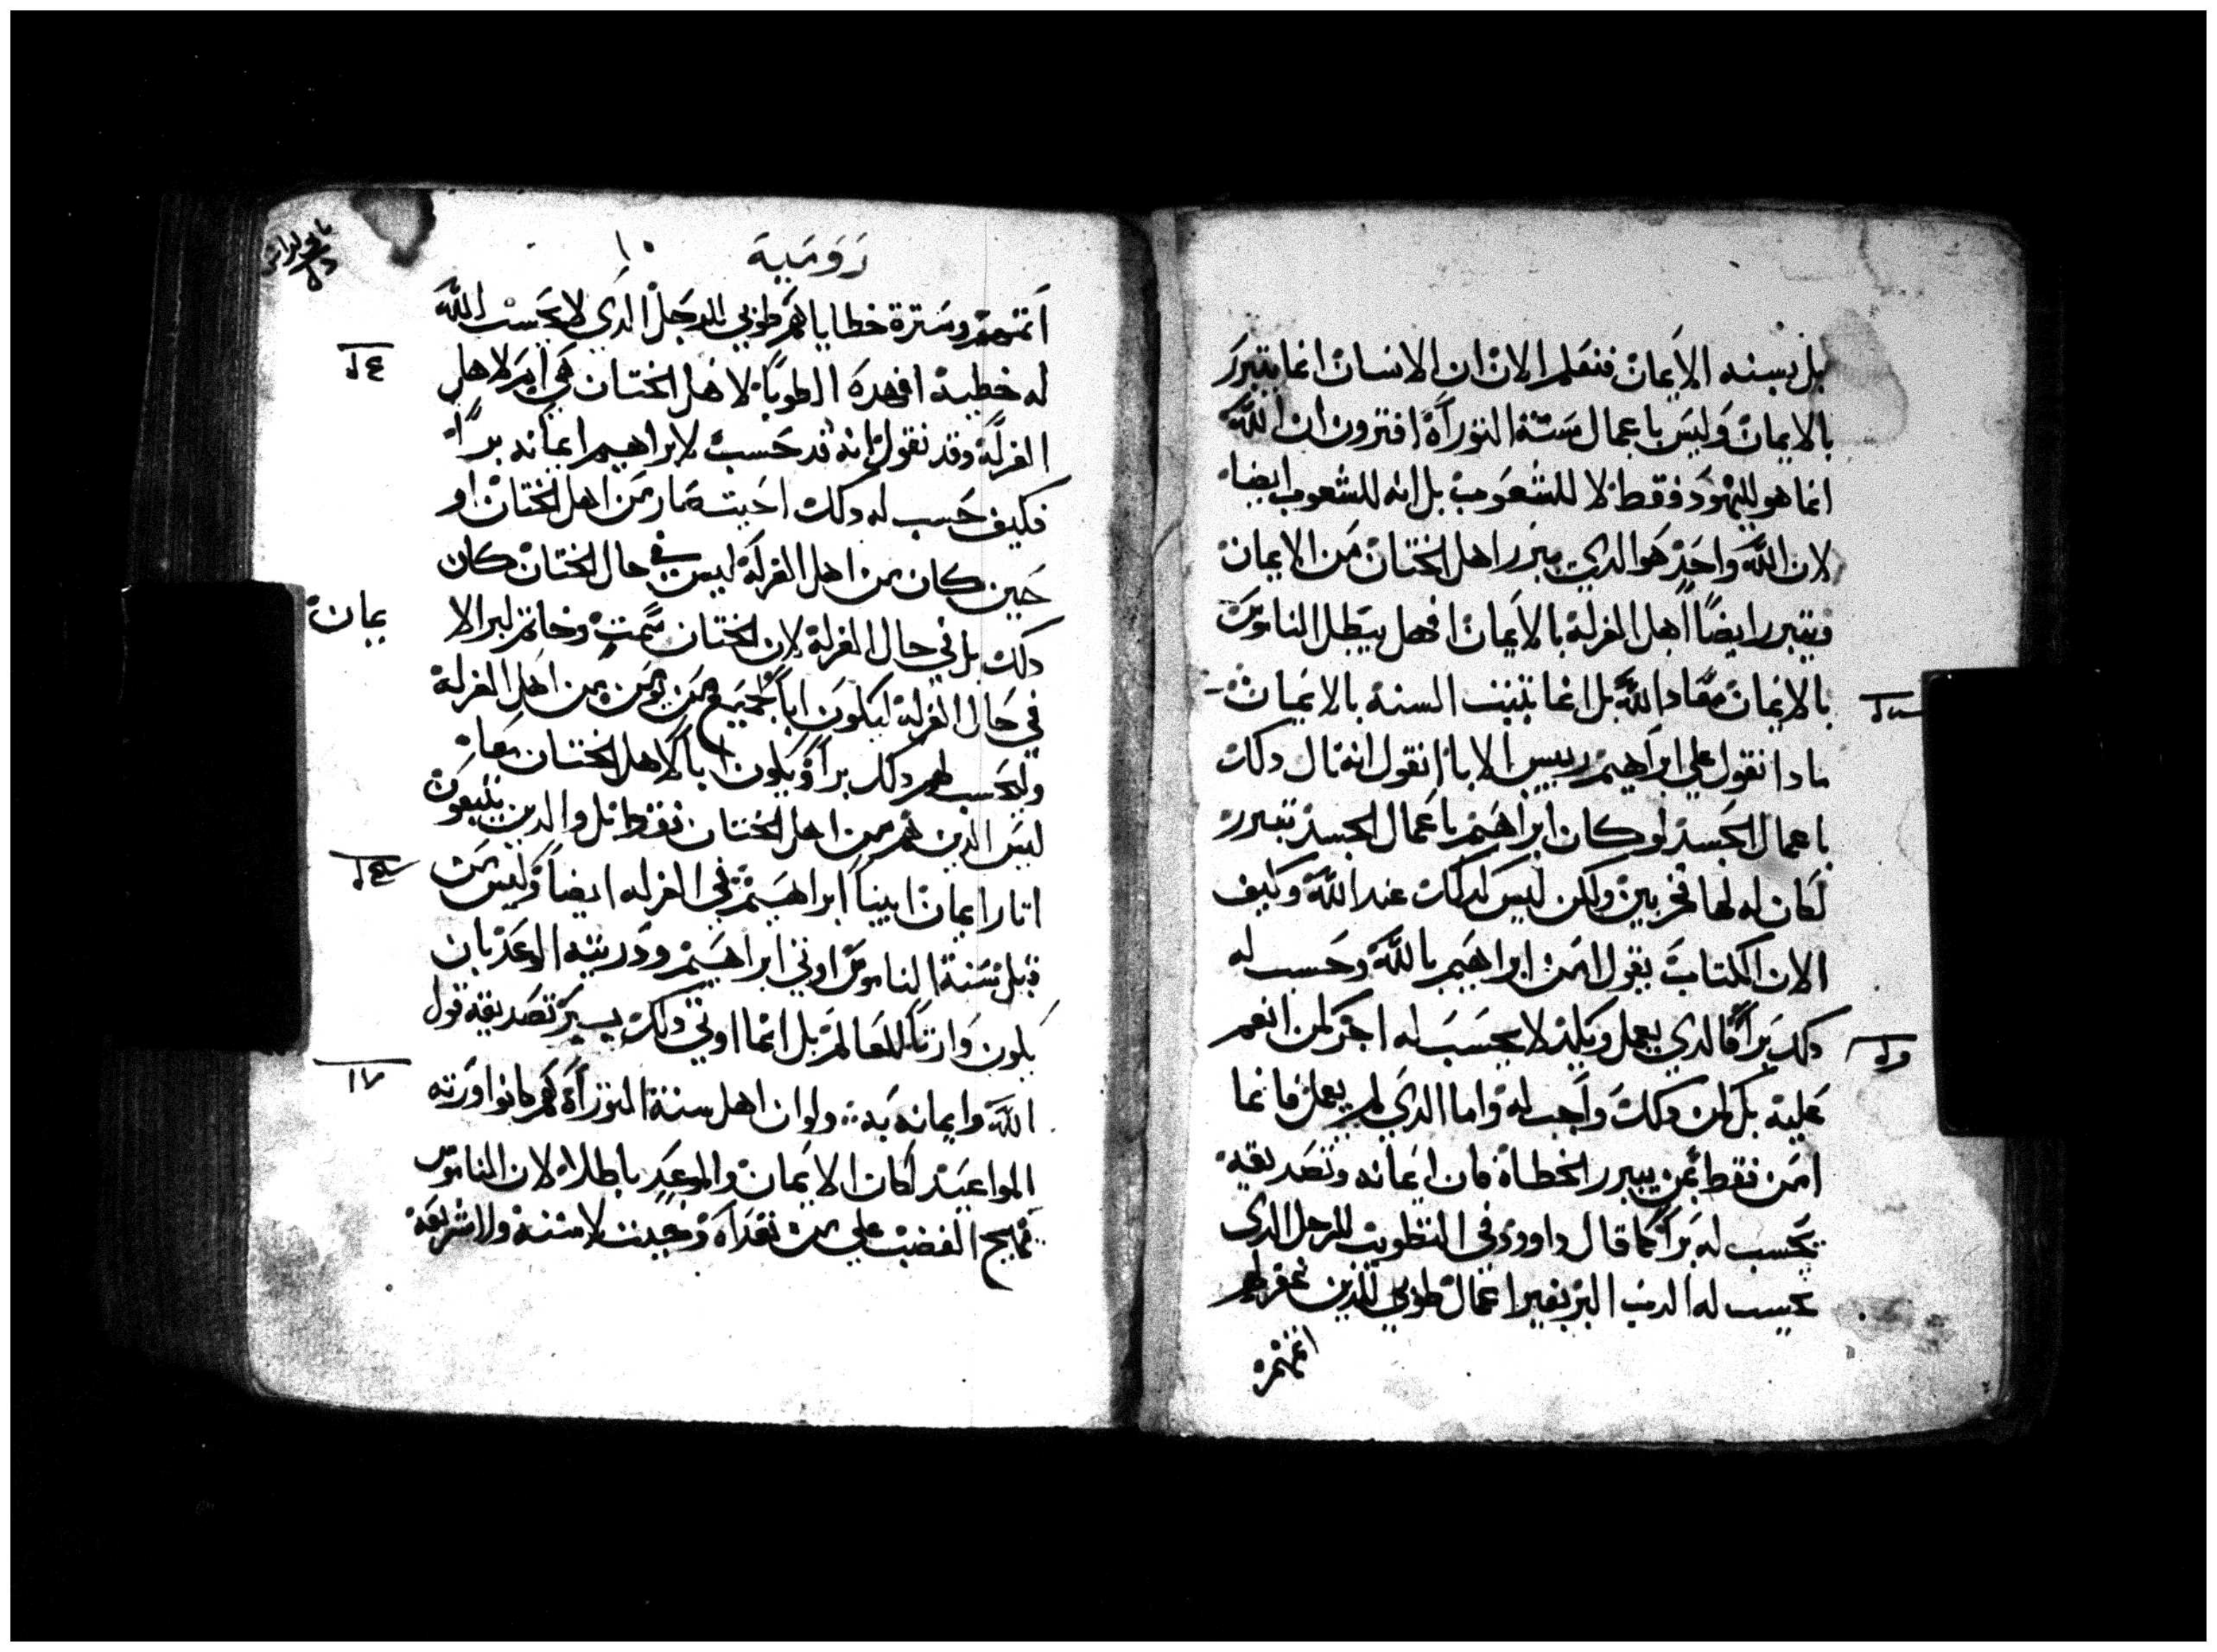 بل بسنه الايمان فنعلم الان ان الانسان انما يتبرر
بالايمان وليس باعمال سنة التوراة افترون ان الله
انما هو لليهود فقط لا للشعوب بل انه للشعوب ايضا
لان الله واحد هو الدي يبرر اهل الختان من الايمان
ويتبرر ايضاً اهل الغرلة بالايمان افهل يبطل الناموس
بالايمان معاد الله بل انما تثبت السنة بالايمان
مادا نقول علي ابراهيم رييس الابا انقول انه نال دلك
باعمال الجسد لو كان ابراهيم باعمال الجسد تبرر
لكان له لها فخر بين ولكن ليس كدلك عند الله وكيف
الان الكتاب يقول امن ابراهيم بالله وحسب له
دلك براً فالدي يعمل ويكد لا يحسب له اجر كمن انعم
عليه بل كمن دلك واجب له واما الدي لم يعمل فانما
امن فقط بمن يبرر الخطاة فان ايمانه وتصديقه
يحسب له براً كما قال داوود في التطويب للرجل الدي
يحسب له الرب البر بغير اعمال طوبي للدين غفر لهم
اثمهم
رومية
١٠
اثمهم وسترة خطاياهم طوبي للرجل الدي لا يحسب الله
له خطية افهده الطوبا لاهل الختان هي ام لاهل
الغرلة وقد نقول انه قد حسب لابراهيم ايمانه براً
فكيف حسب له دلك احيث صار من اهل الختان او
حين كان من اهل الغرلة ليس في حال الختان كان
دلك بل في حال الغرلة لان الختان سمت وخاتم لبر الا
يمان
في حال الغرلة ليكون اباً لجميع من يومن من اهل الغرلة
وليحسب لهم دلك براً ويكون اباً لاهل الختان معا
ليس الدين هم من اهل الختان فقط بل والدين يتبعون
اتار ايمان ابينا ابراهيم في الغرله ايضاً وليس من
قبل سنة الناموس اوتي ابراهيم ودريته الوعد بان
يكون وارتاً للعالم بل انما اوتي دلك ببر تصديقه قول
الله وايمانه به ولو ان اهل سنة التوراة هم كانوا ورته
المواعيد لكان الايمان والموعد باطلا لان الناموس
يهيج الغضب علي من تعداه وحيث لا سنة ولا شريعة